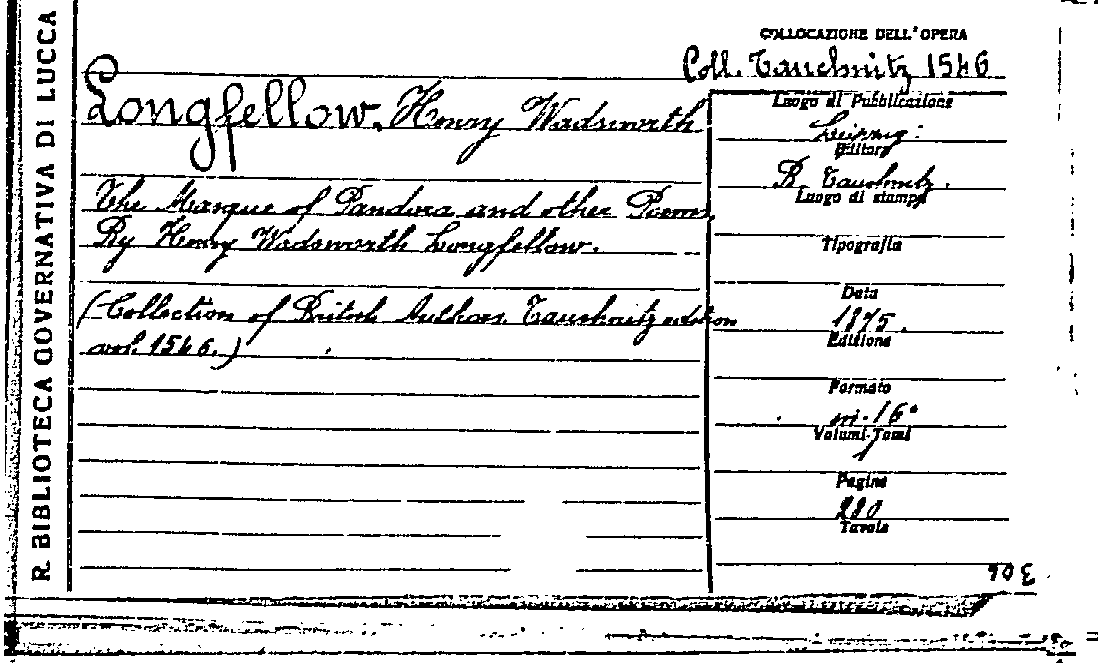 R. BIBLIOTECA GOVERNATIVA DI LUCCA
COLLOCAZIONE DELL'OPERA
Coll. Tauchnitz 1546
Longfellow, Henry Wadsworth
The Masque of Pandora and other Poems,
By Henry Wadsworth Longfellow.
(Collection of British Authors. Tauchnitz edition
vol. 1546.)
Luogo di Pubblicazione
Leipzig:
Editore
B. Tauchnitz.
Luogo di stampa
Tipografia
Data
1875.
Edizione
Formato
in-16°
Volumi-Tomi
1
Pagine
280
Tavole